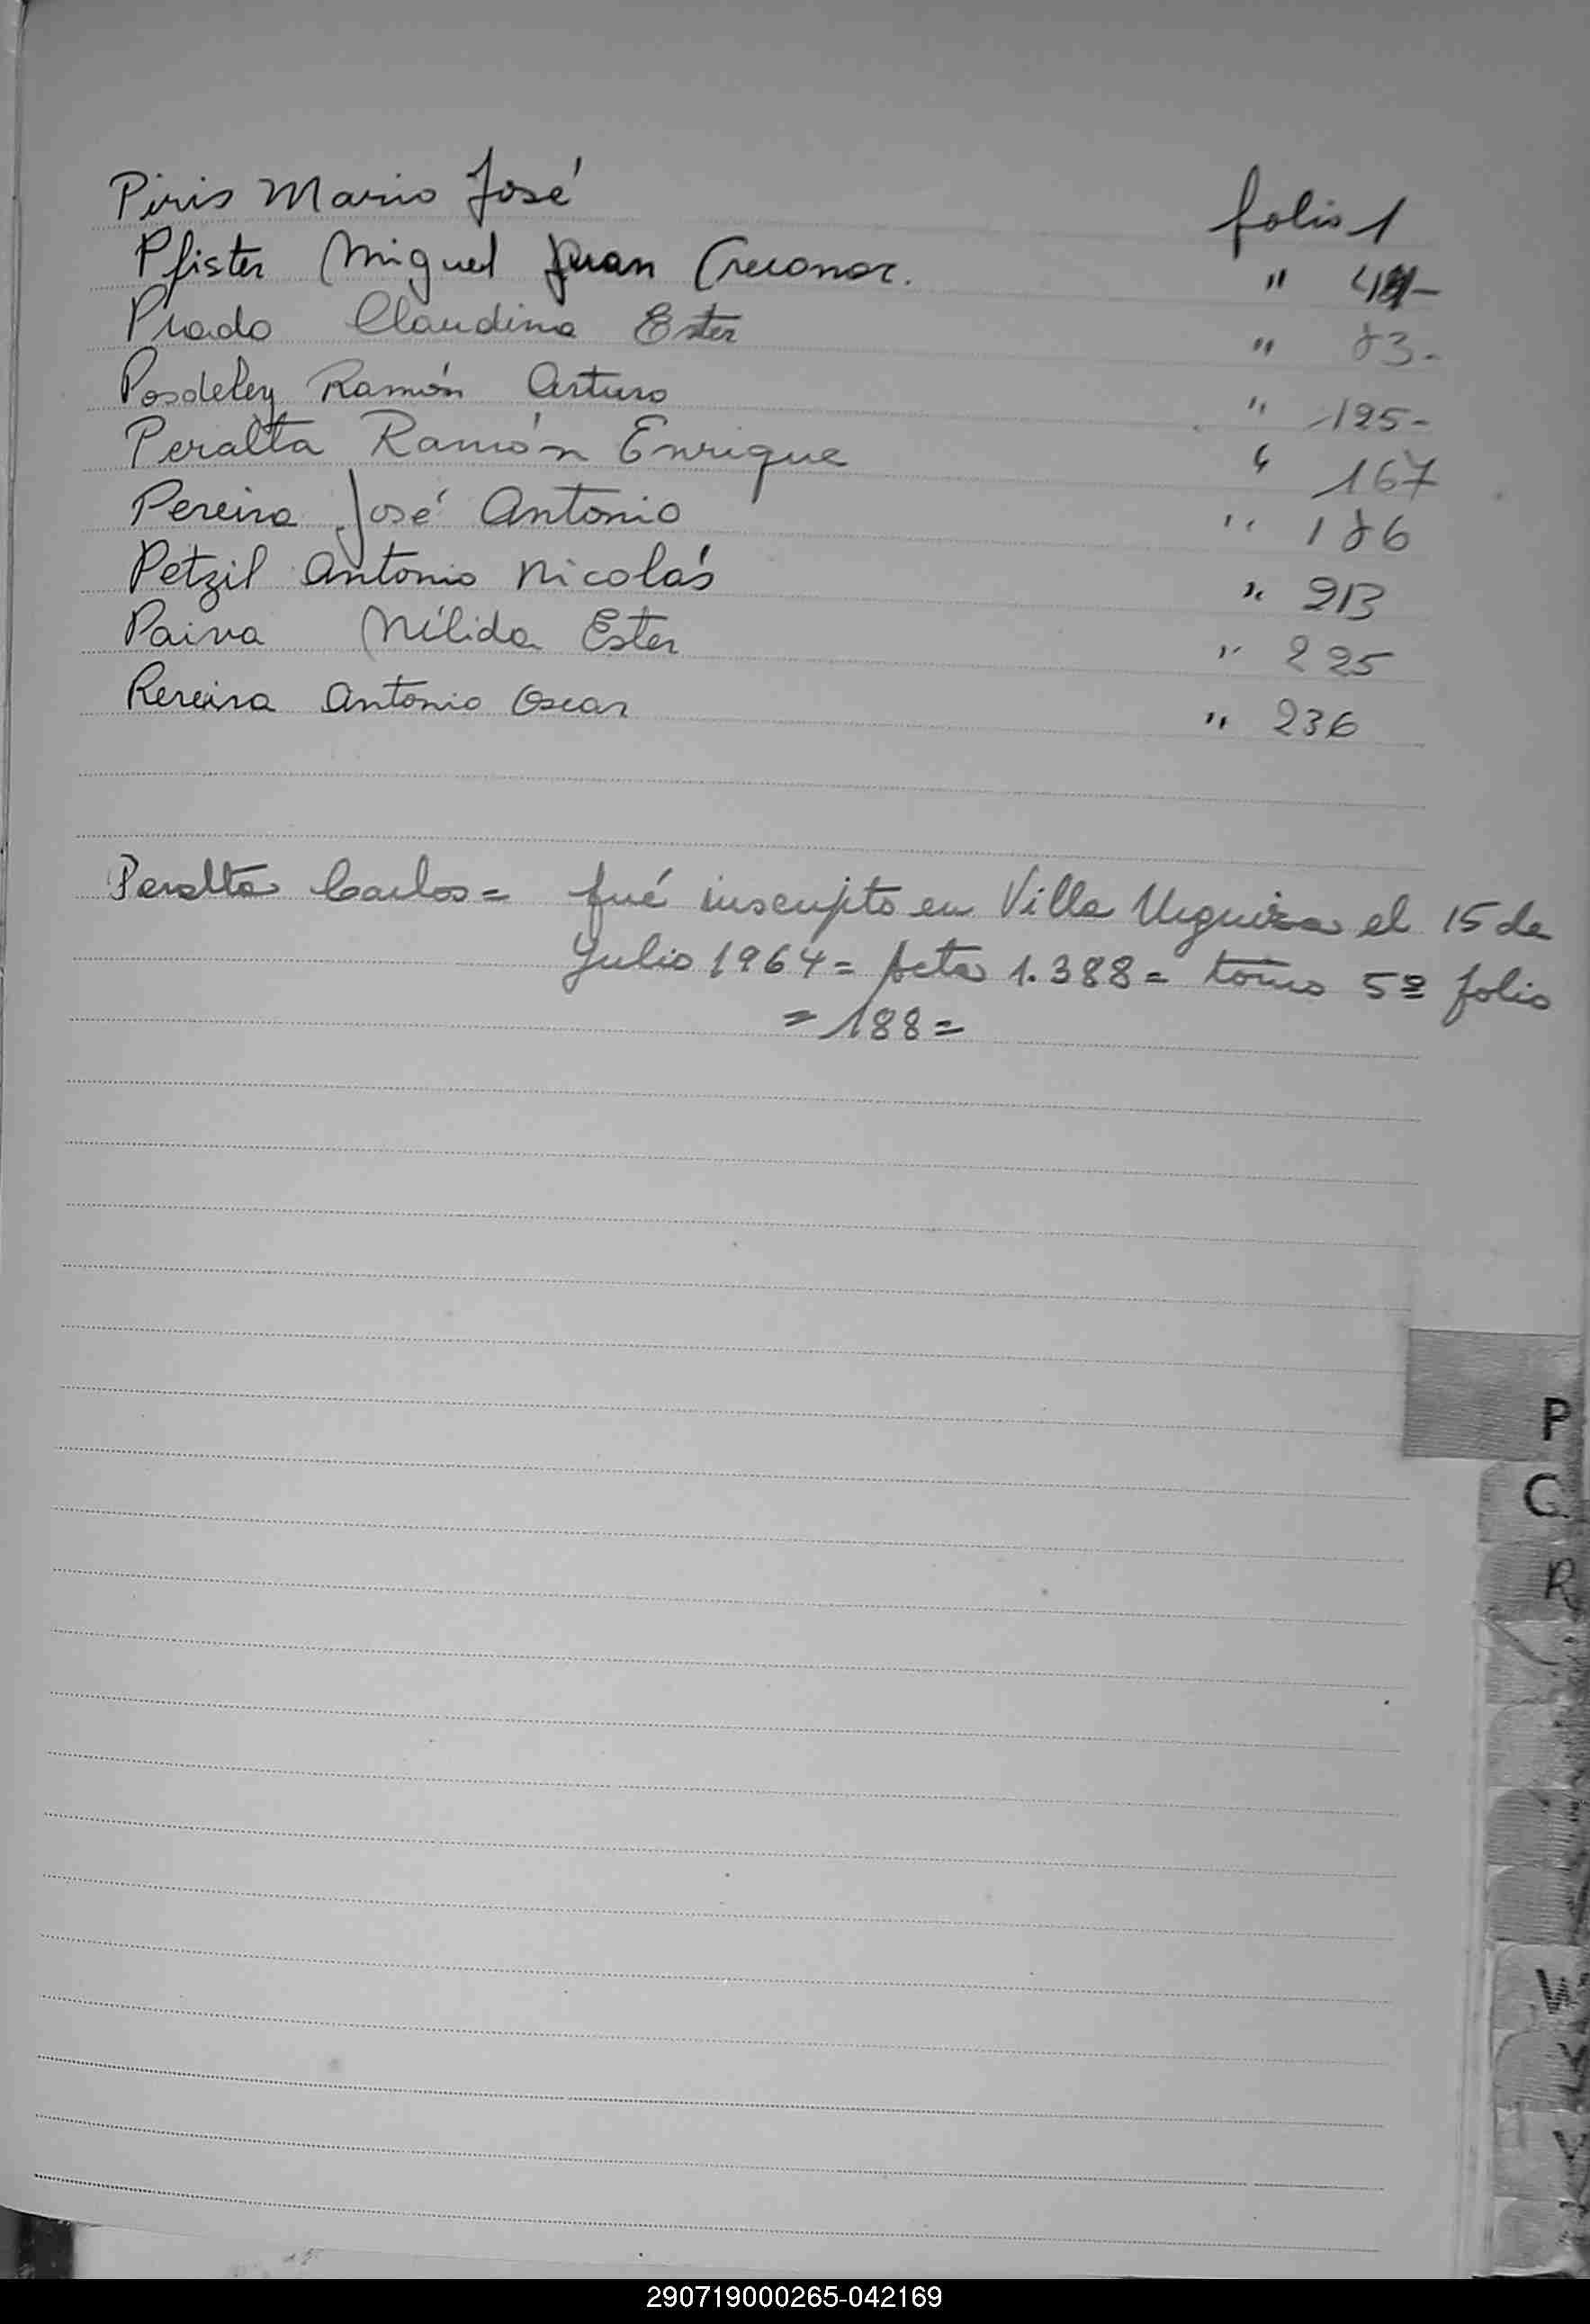 Piris Mario José folio 1
Pfister Miguel Juan (reconoc. "
Prado Claudina Ester " 83-
Posdeley Ramón Arturo " 125-
Peralta Ramón Enrique " 167
Pereira José Antonio " 186
Petzil Antonio Nicolás " 213
Paiva Nélida Ester " 225
Pereira Antonio Oscar " 236
Peralta Carlos = fué inscripto en Villa Urquiza el 15 de
Julio 1964 = Acta 1.388 = tomo 5º folio
= 188 =
P
Q
R
W
Y
290719000265-042169